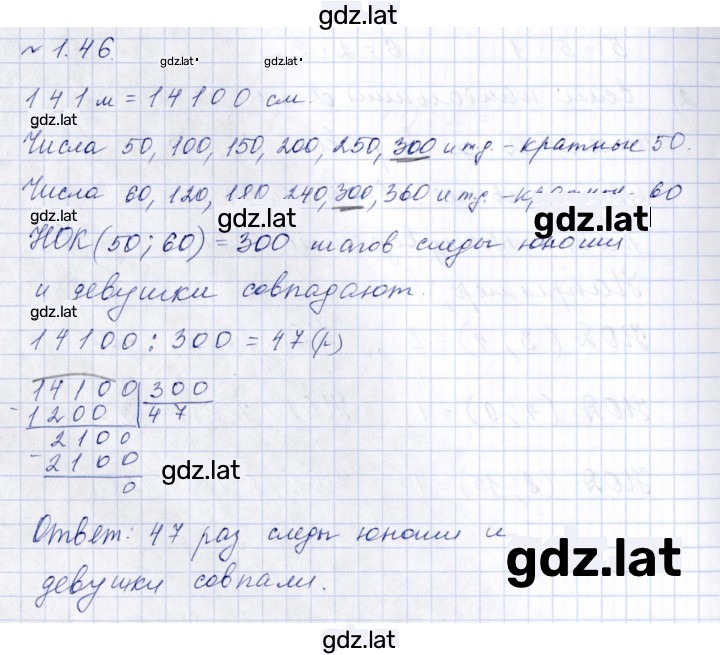 gdz.lat
№ 1.46.
gdz.lat gdz.lat
141 м = 14100 см.
gdz.lat
Числа 50, 100, 150, 200, 250, 300 и тд. - кратные 50.
Числа 60, 120, 180 240, 300, 360 и тд. - 60
gdz.lat gdz.lat gdz.lat
НОК (50; 60) = 300 шагов следы юноши
и девушки совпадают.
gdz.lat
14100 : 300 = 47 (р)
14100 300
- 1200 47
2100
- 2100
0
gdz.lat
Ответ: 47 раз следы юноши и
девушки совпали.
gdz.lat
gdz.lat